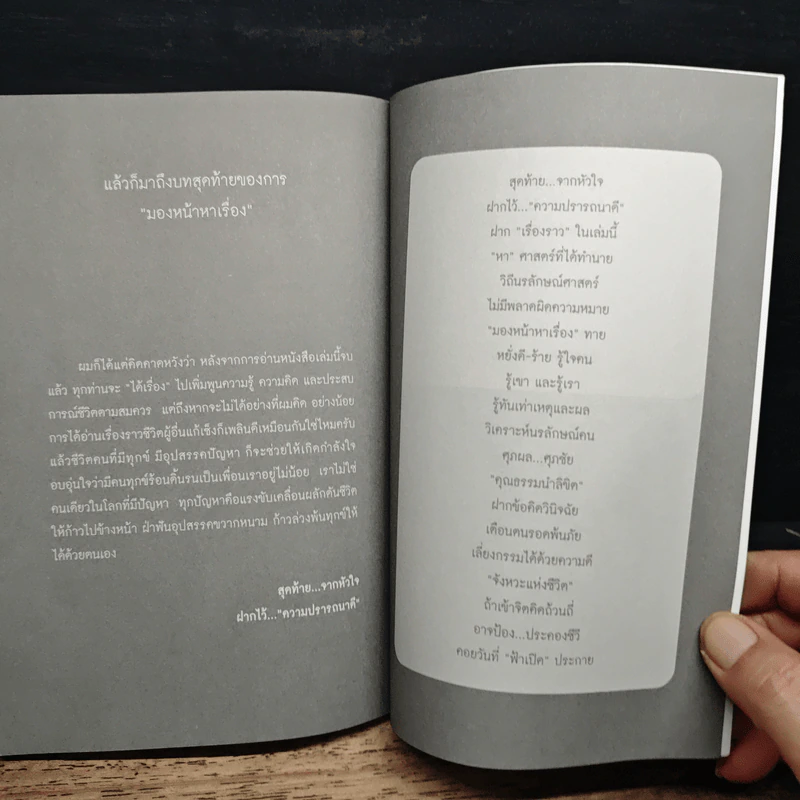 แล้วก็มาถึงบทสุดท้ายของการ
"มองหน้าหาเรื่อง"
ผมก็ได้แต่คิดคาดหวังว่า หลังจากการอ่านหนังสือเล่มนี้จบ
แล้ว ทุกท่านจะ "ได้เรื่อง" ไปเพิ่มพูนความรู้ ความคิด และประสบ
การณ์ชีวิตตามสมควร แต่ถึงหากจะไม่ได้อย่างที่ผมคิด อย่างน้อย
การได้อ่านเรื่องราวชีวิตผู้อื่นแก้เซ็งก็เพลินดีเหมือนกันใช่ไหมครับ
แล้วชีวิตคนที่มีทุกข์ มีอุปสรรคปัญหา ก็จะช่วยให้เกิดกำลังใจ
อบอุ่นใจว่ามีคนทุกข์ร้อนดิ้นรนเป็นเพื่อนเราอยู่ไม่น้อย เราไม่ใช่
คนเดียวในโลกที่มีปัญหา ทุกปัญหาคือแรงขับเคลื่อนผลักดันชีวิต
ให้ก้าวไปข้างหน้า ฝ่าฟันอุปสรรคขวากหนาม ก้าวล่วงพ้นทุกข์ให้
ได้ด้วยตนเอง
สุดท้าย...จากหัวใจ
ฝากไว้..."ความปรารถนาดี"
สุดท้าย...จากหัวใจ
ฝากไว้..."ความปรารถนาดี"
ฝาก "เรื่องราว" ในเล่มนี้
"หา" ศาสตร์ที่ได้ทำนาย
วิถีนรลักษณ์ศาสตร์
ไม่มีพลาดผิดความหมาย
"มองหน้าหาเรื่อง" ทาย
หยั่งดี-ร้าย รู้ใจคน
รู้เขา และรู้เรา
รู้ทันเท่าเหตุและผล
วิเคราะห์นรลักษณ์คน
ศุภผล...ศุภชัย
"คุณธรรมนำลิขิต"
ฝากข้อคิดวินิจฉัย
เตือนตนรอดพ้นภัย
เลี่ยงกรรมได้ด้วยความดี
"จังหวะแห่งชีวิต"
ถ้าเข้าจิตคิดถ้วนถี่
อาจป้อง...ประคองชีวี
คอยวันที่ "ฟ้าเปิด" ประกาย